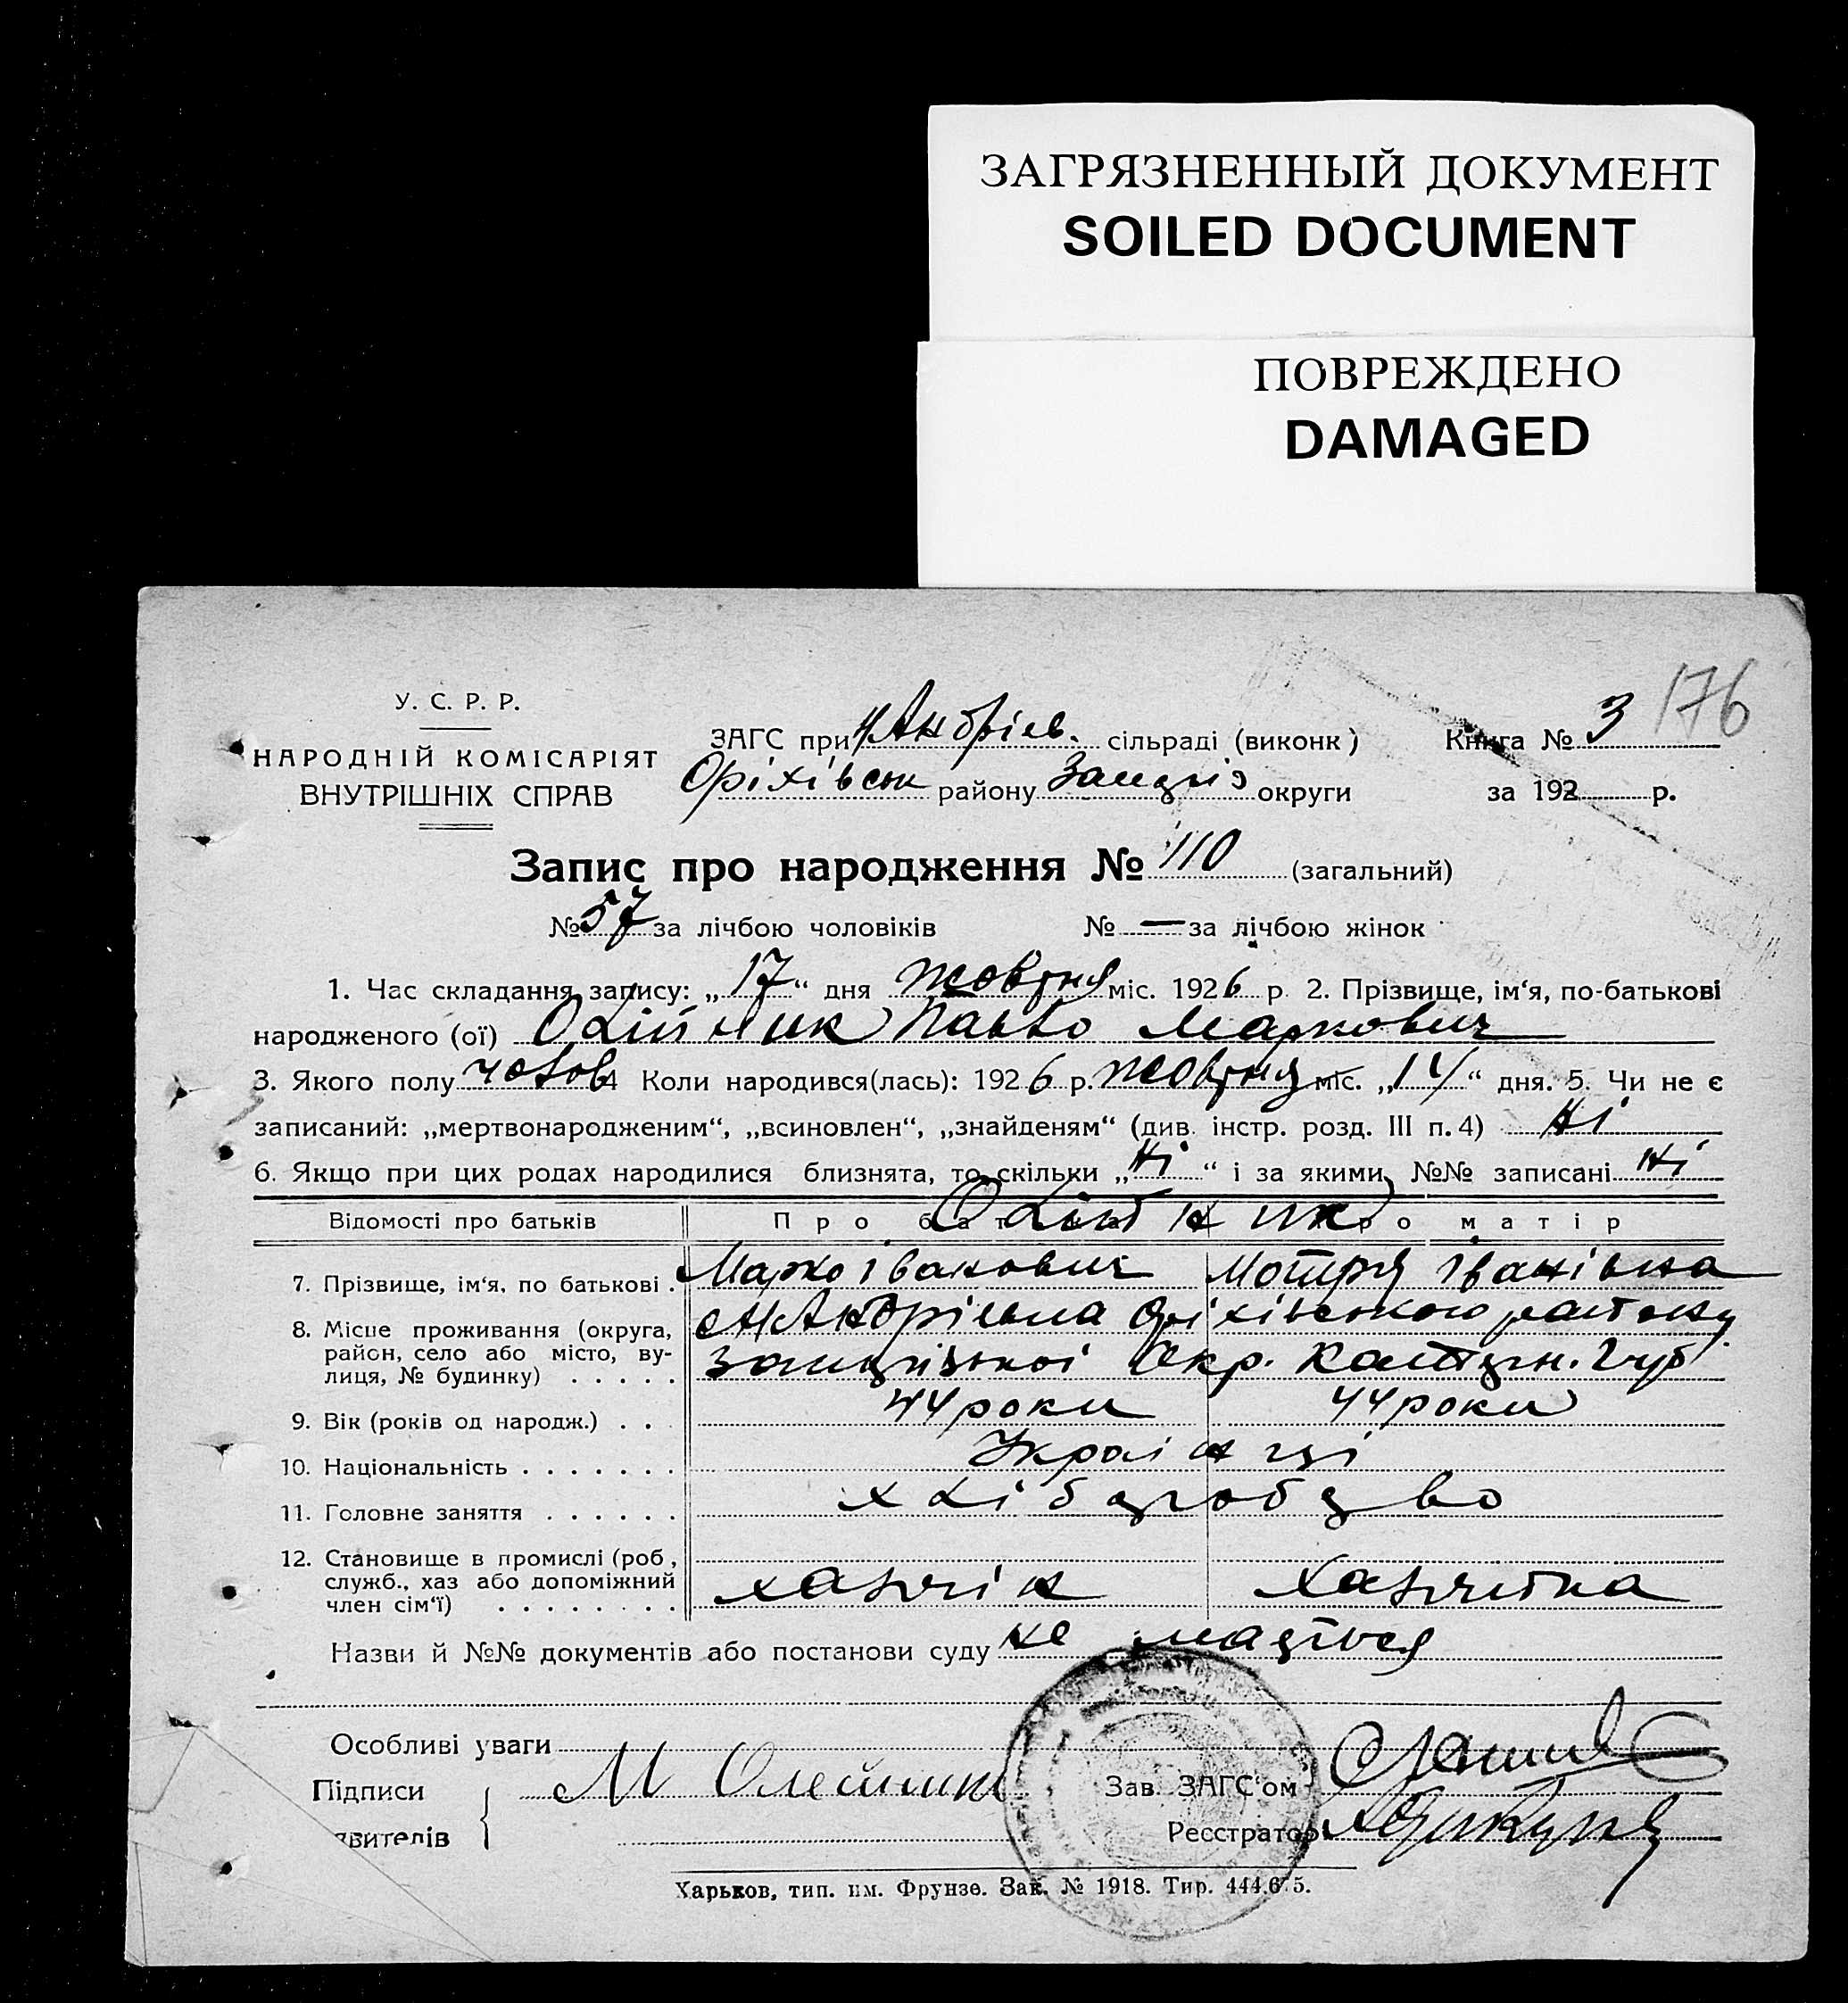 ЗАГРЯЗНЕННЫЙ ДОКУМЕНТ
SOILED DOCUMENT
ПОВРЕЖДЕНО
DAMAGED
176
У. С. Р. Р.
НАРОДНІЙ КОМІСАРІЯТ
ВНУТРІШНІХ СПРАВ
ЗАГС при Н Андріев. сільраді (виконк) Книга № 3
Оріхівськ району округи за 192 р.
Запис про народження № 110 (загальний)
№ 57 за лічбою чоловіків № — за лічбою жінок
1. Час складання запису: „17“ дня жовтня міс. 1926 р. 2. Прізвище, ім‘я, по-батькові
народженого (ої) Олійник Павло Маркович
3. Якого полу чолов 4 Коли народився(лась): 1926 р. жовтня міс. „14“ дня. 5. Чи не є
записаний: „мертвонародженим“, „всиновлен“, „знайденям“ (див. інстр. розд. III п. 4) Ні
6. Якщо при цих родах народилися близнята, то скільки „Ні“ і за якими №№ записані Ні
Відомості про батьків Про батька Про матір
Олійник
7. Прізвище, ім‘я, по батькові . Марко Іванович Мотря Іванівна
8. Місце проживання (округа, Н Андріевка Оріхівського району
район, село або місто, ву-
лиця, № будинку) . . . . . Окр.
9. Вік (років од народж.) . . . 44 роки 44 роки
10. Національність . . . . . . . Українці
11. Головне заняття . . . . . . хліборобство
12. Становище в промислі (роб.,
служб., хаз або допоміжний хазяїн хазяйка
член сім‘ї) . . . . . . . .
Назви й №№ документів або постанови суду не мається
Особливі уваги
Підписи М Олейник Зав ЗАГС‘ом
явителів Реєстратор
Харьков, тип. им. Фрунзе. Зак. № 1918. Тир. 444.675.